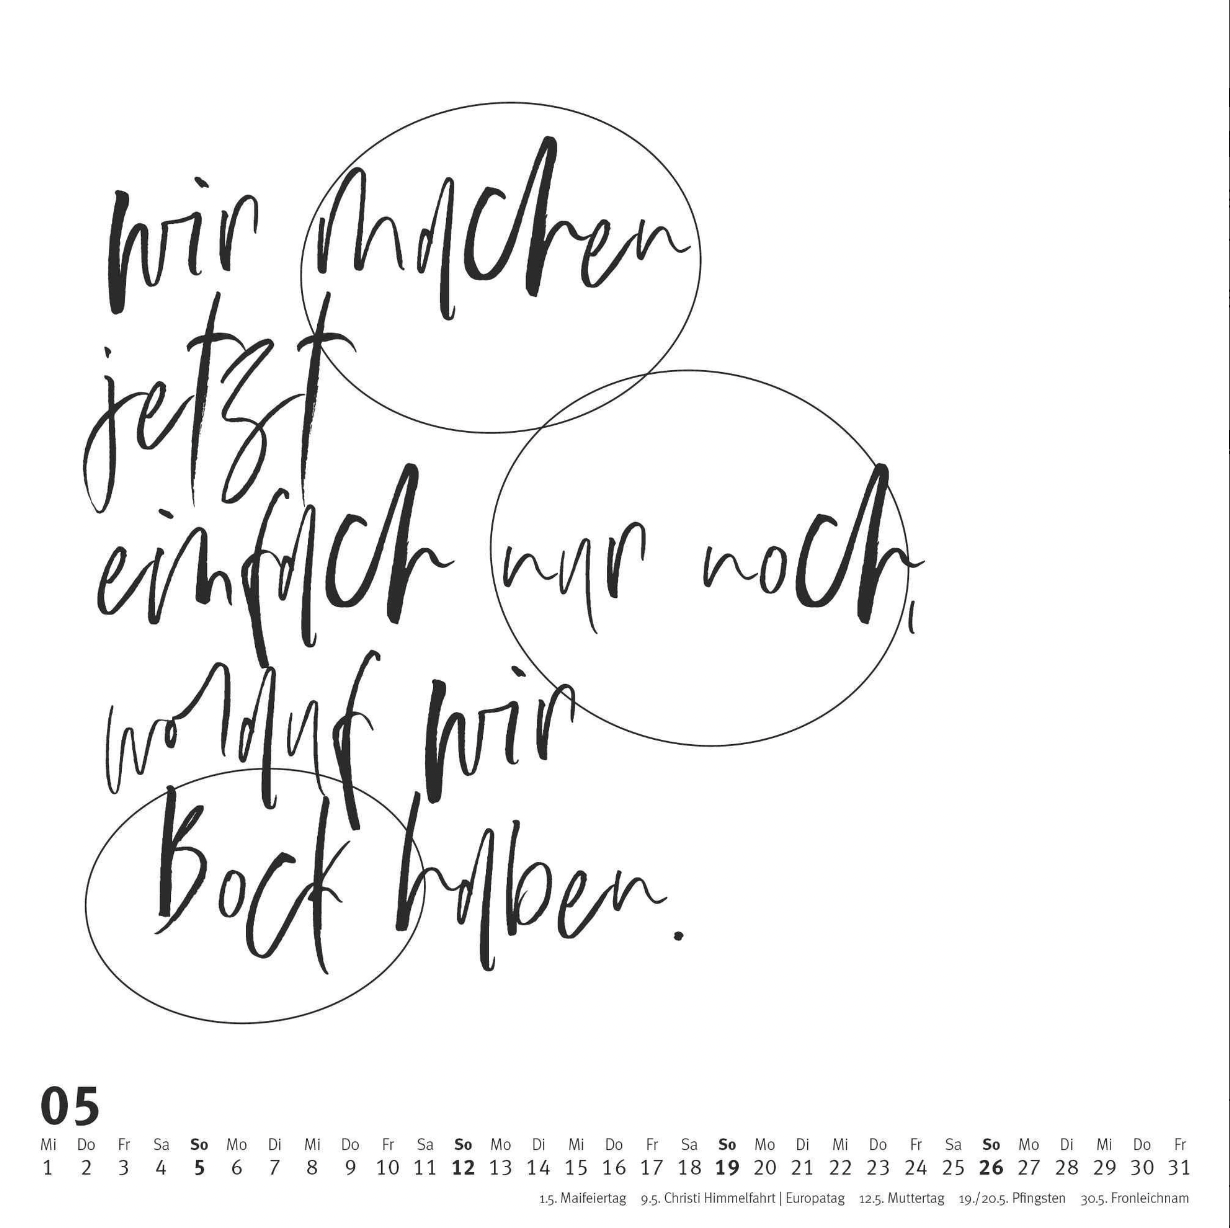 wir machen
jetzt
einfach nur noch,
worauf wir
Bock haben.
05
Mi Do Fr Sa So Mo Di Mi Do Fr Sa So Mo Di Mi Do Fr Sa So Mo Di Mi Do Fr Sa So Mo Di Mi Do Fr
1 2 3 4 5 6 7 8 9 10 11 12 13 14 15 16 17 18 19 20 21 22 23 24 25 26 27 28 29 30 31
1.5. Maifeiertag 9.5. Christi Himmelfahrt | Europatag 12.5. Muttertag 19./20.5. Pfingsten 30.5. Fronleichnam